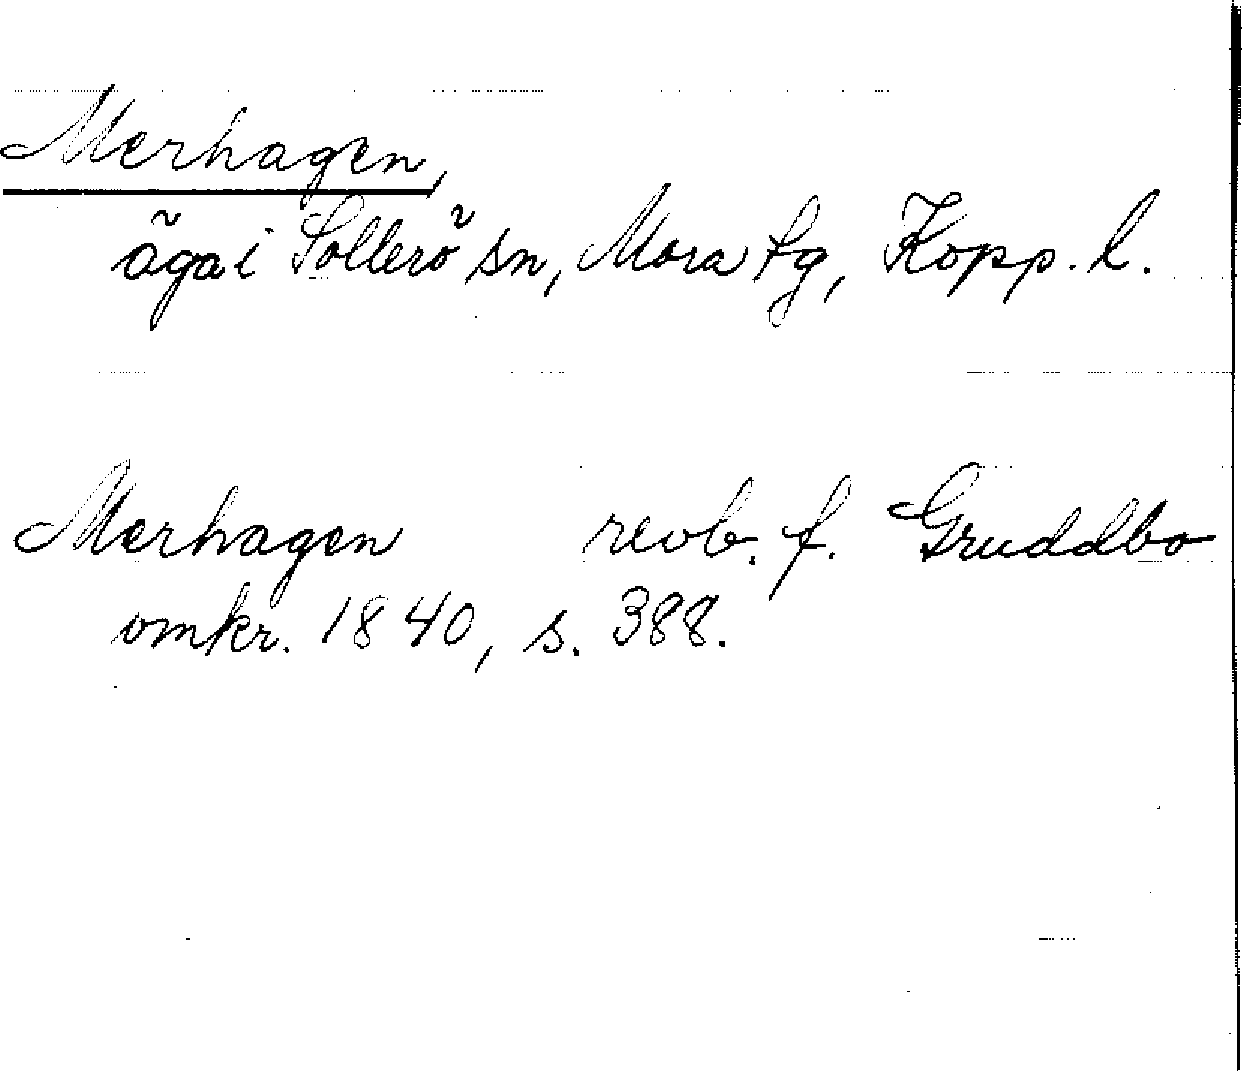 Merhagen,
äga i Sollerö sn, Mora tg, Kopp. l.
Merhagen revb. f. Gruddbo
omkr. 1840, s. 388.